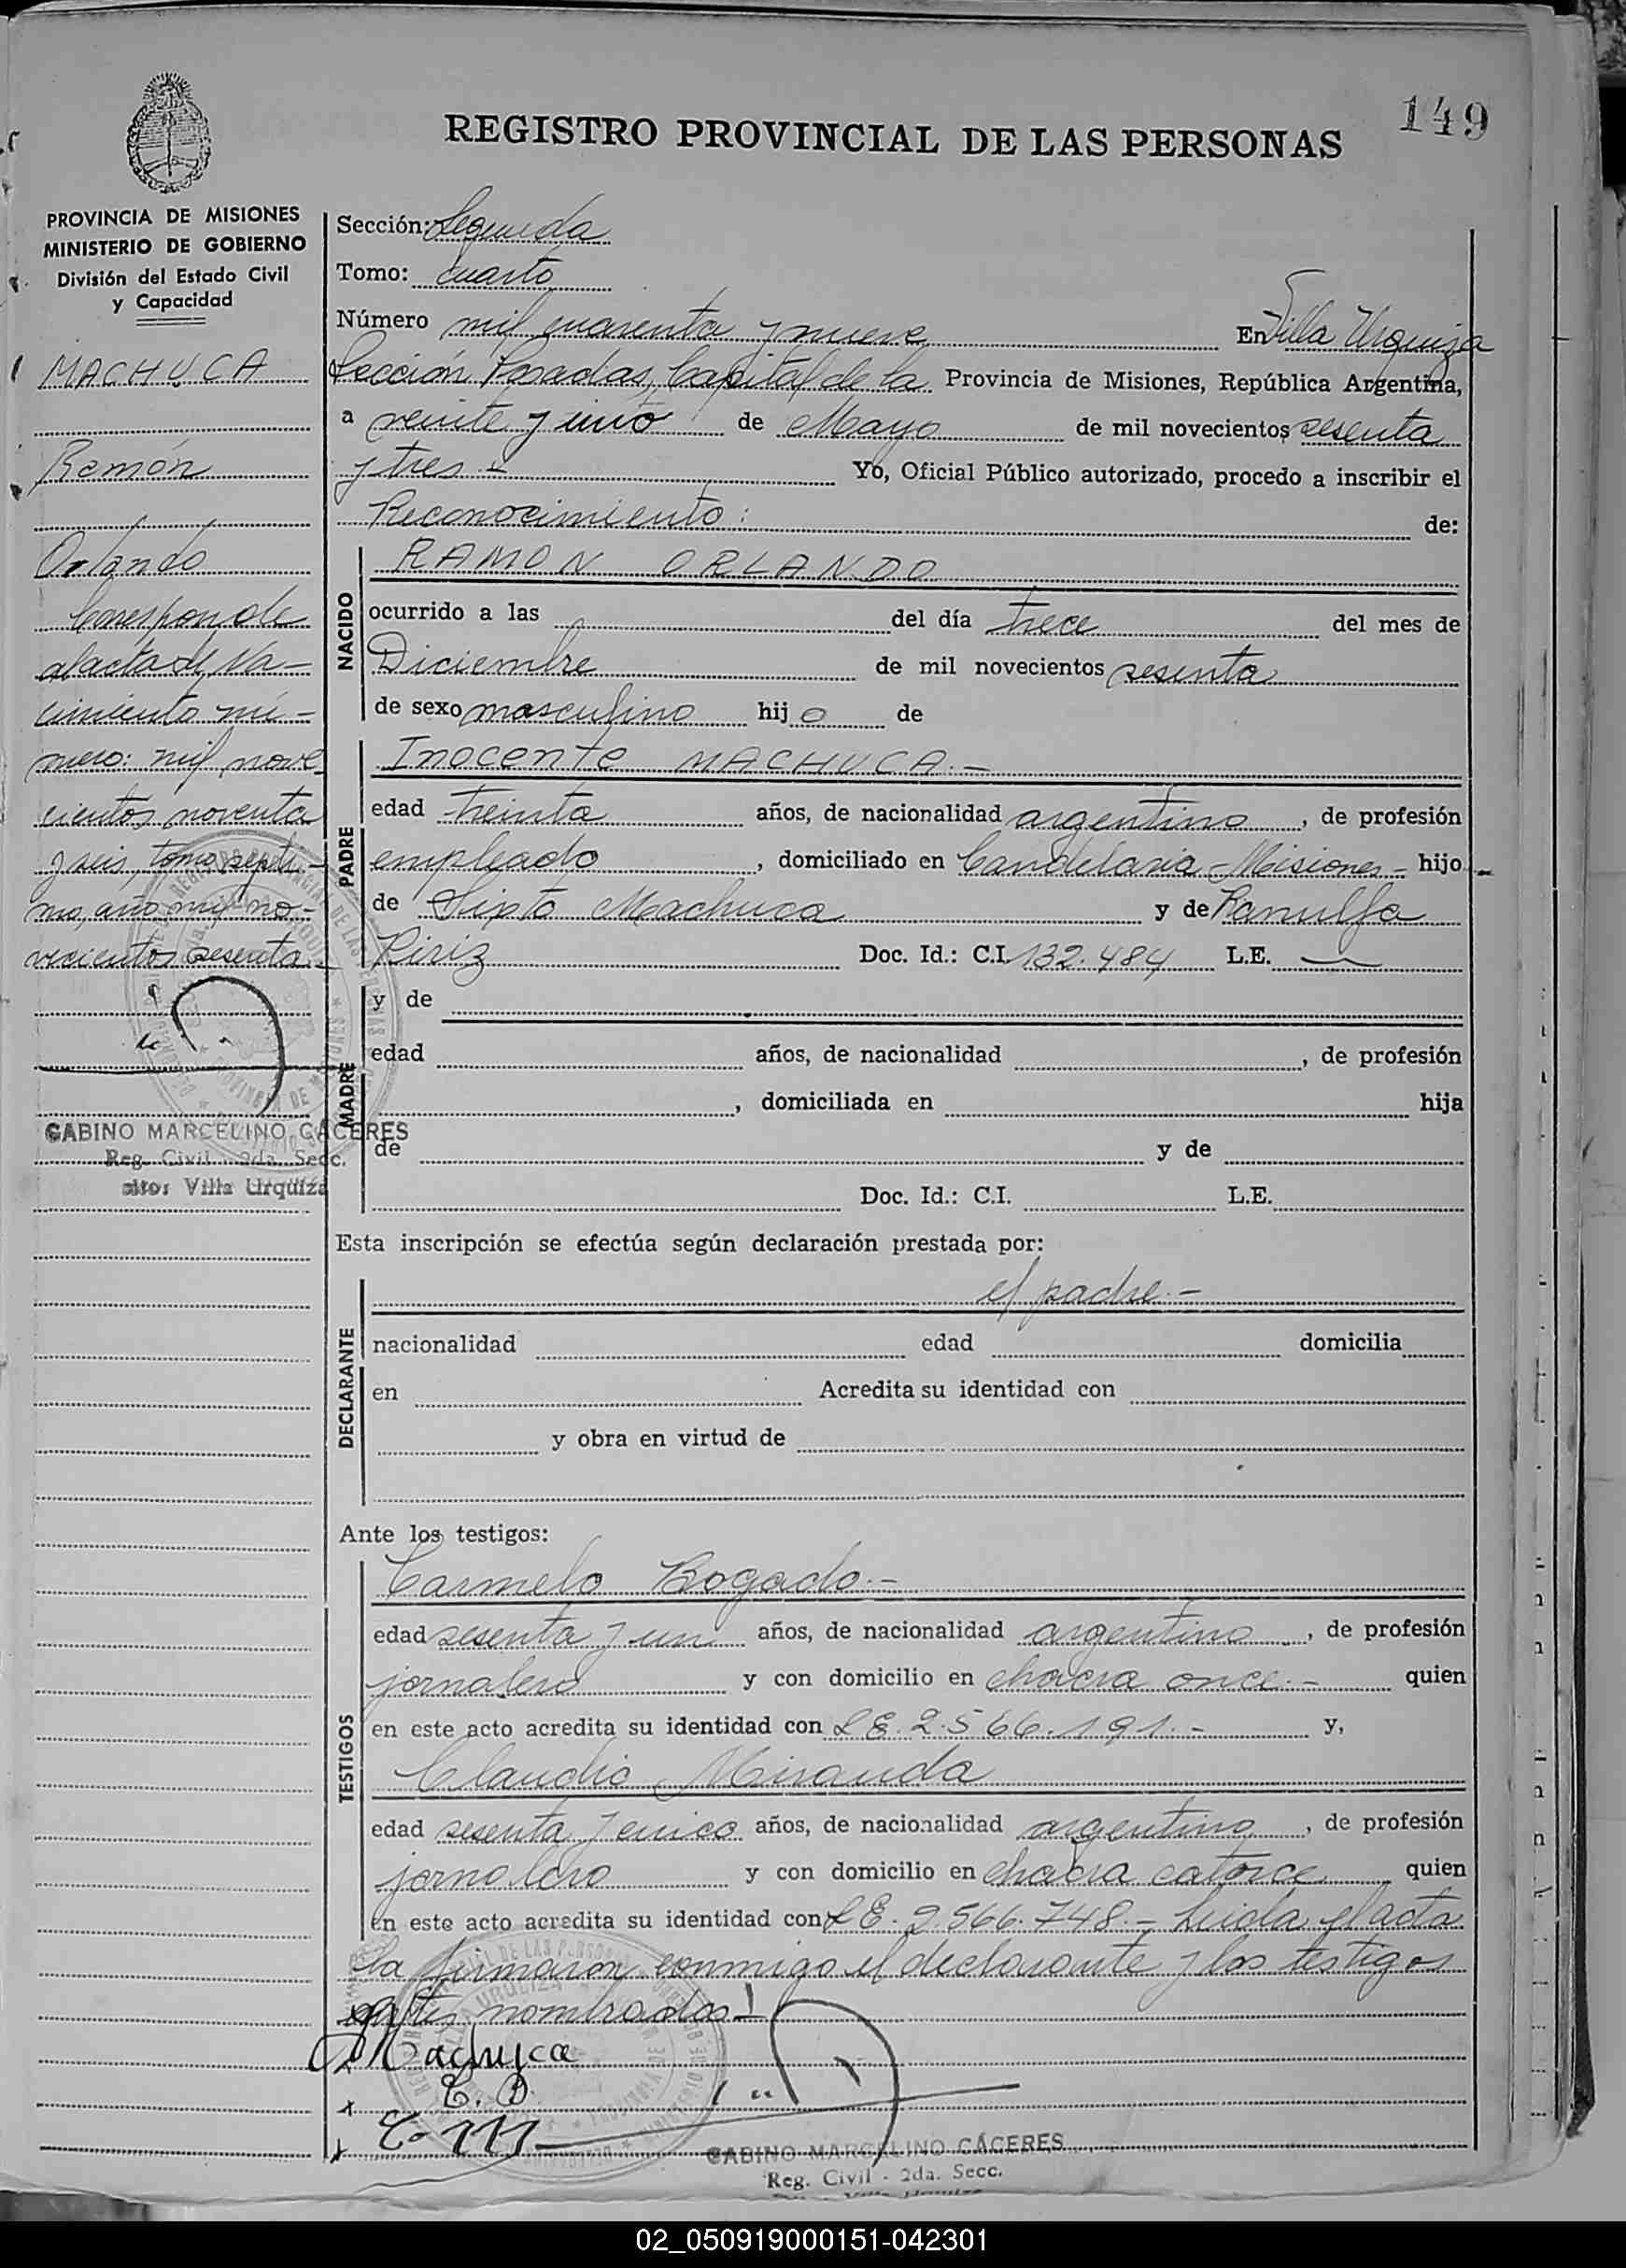 149
REGISTRO PROVINCIAL DE LAS PERSONAS
PROVINCIA DE MISIONES
MINISTERIO DE GOBIERNO
División del Estado Civil
y Capacidad
MACHUCA
Ramón
Orlando
Corresponde
al acta de Na-
cimiento nú-
mero: mil nove
cientos noventa
y seis, tomo sépti-
mo, año mil no-
vecientos sesenta.-
GABINO MARCELINO CACERES
Reg. Civil 2da. Secc.
Villa Urquiza
Sección: Segunda
Tomo: Cuarto
Número mil cuarenta y nueve En Villa Urquiza
Sección Posadas, Capital de la Provincia de Misiones, República Argentina,
a veinte y uno de Mayo de mil novecientos sesenta
y tres.- Yo, Oficial Público autorizado, procedo a inscribir el
Reconocimiento: de:
NACIDO
RAMON ORLANDO
ocurrido a las del día trece del mes de
Diciembre de mil novecientos sesenta
de sexo masculino hijo de
PADRE
Inocente MACHUCA.-
edad treinta años, de nacionalidad argentino, de profesión
empleado, domiciliado en Candelaria - Misiones - hijo
de Sixto Machuca y de Ranulfa
Piriz Doc. Id.: C.I. 132.484 L.E. —
MADRE
y de
edad años, de nacionalidad , de profesión
, domiciliada en hija
de y de
Doc. Id.: C.I. L.E.
Esta inscripción se efectúa según declaración prestada por:
el padre.-
DECLARANTE
nacionalidad edad domicilia
en Acredita su identidad con
y obra en virtud de
Ante los testigos:
TESTIGOS
Carmelo Bogado.-
edad sesenta y un años, de nacionalidad argentino, de profesión
jornalero y con domicilio en chacra once.- quien
en este acto acredita su identidad con L E. 2.566.191.- y,
Claudio Miranda
edad sesenta y cinco años, de nacionalidad argentino, de profesión
jornalero y con domicilio en chacra catorce quien
en este acto acredita su identidad con L E. 2.566.748.- Leida el acta
la firmaron conmigo el declarante y los testigos
antes nombrados
Machuca
C. B.
GABINO MARCELINO CÁCERES
Reg. Civil - 2da. Secc.
02_050919000151-042301